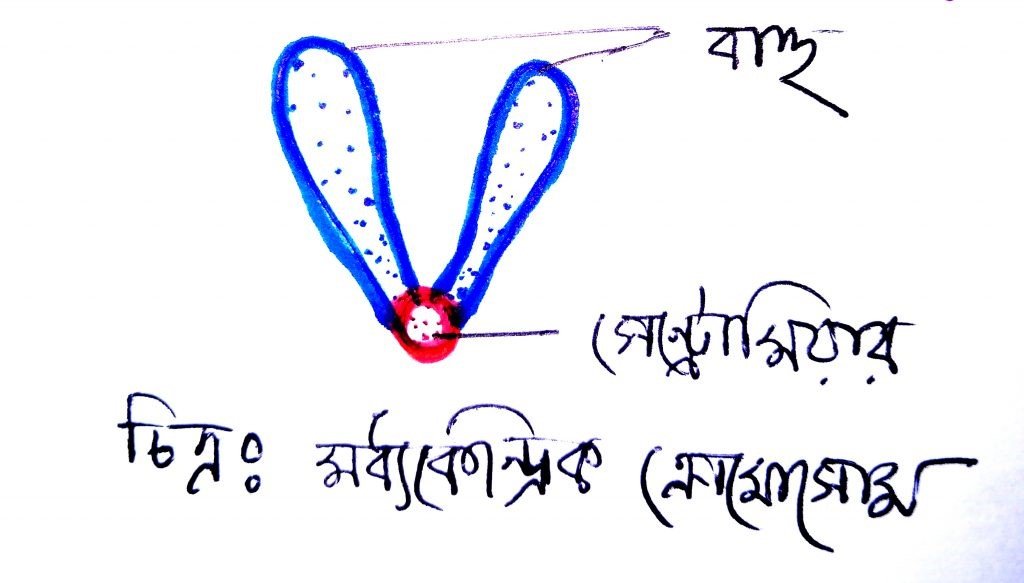 বাহু
সেন্ট্রোমিয়ার
চিত্র: মধ্যকেন্দ্রিক ক্রোমোসোম